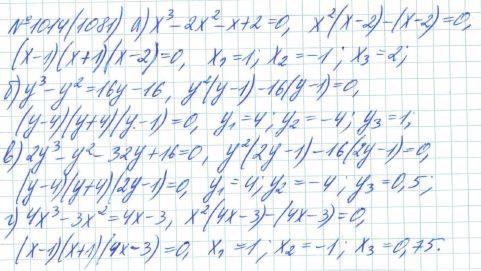 №1014(1081) а) x³-2x²-x+2=0, x²(x-2)-(x-2)=0,
(x-1)(x+1)(x-2)=0, x₁=1; x₂=-1; x₃=2;
б) y³-y²=16y-16, y²(y-1)-16(y-1)=0,
(y-4)(y+4)(y-1)=0, y₁=4; y₂=-4; y₃=1;
в) 2y³-y²-32y+16=0, y²(2y-1)-16(2y-1)=0,
(y-4)(y+4)(2y-1)=0, y₁=4; y₂=-4; y₃=0,5;
г) 4x³-3x²=4x-3, x²(4x-3)-(4x-3)=0,
(x-1)(x+1)(4x-3)=0, x₁=1; x₂=-1; x₃=0,75.